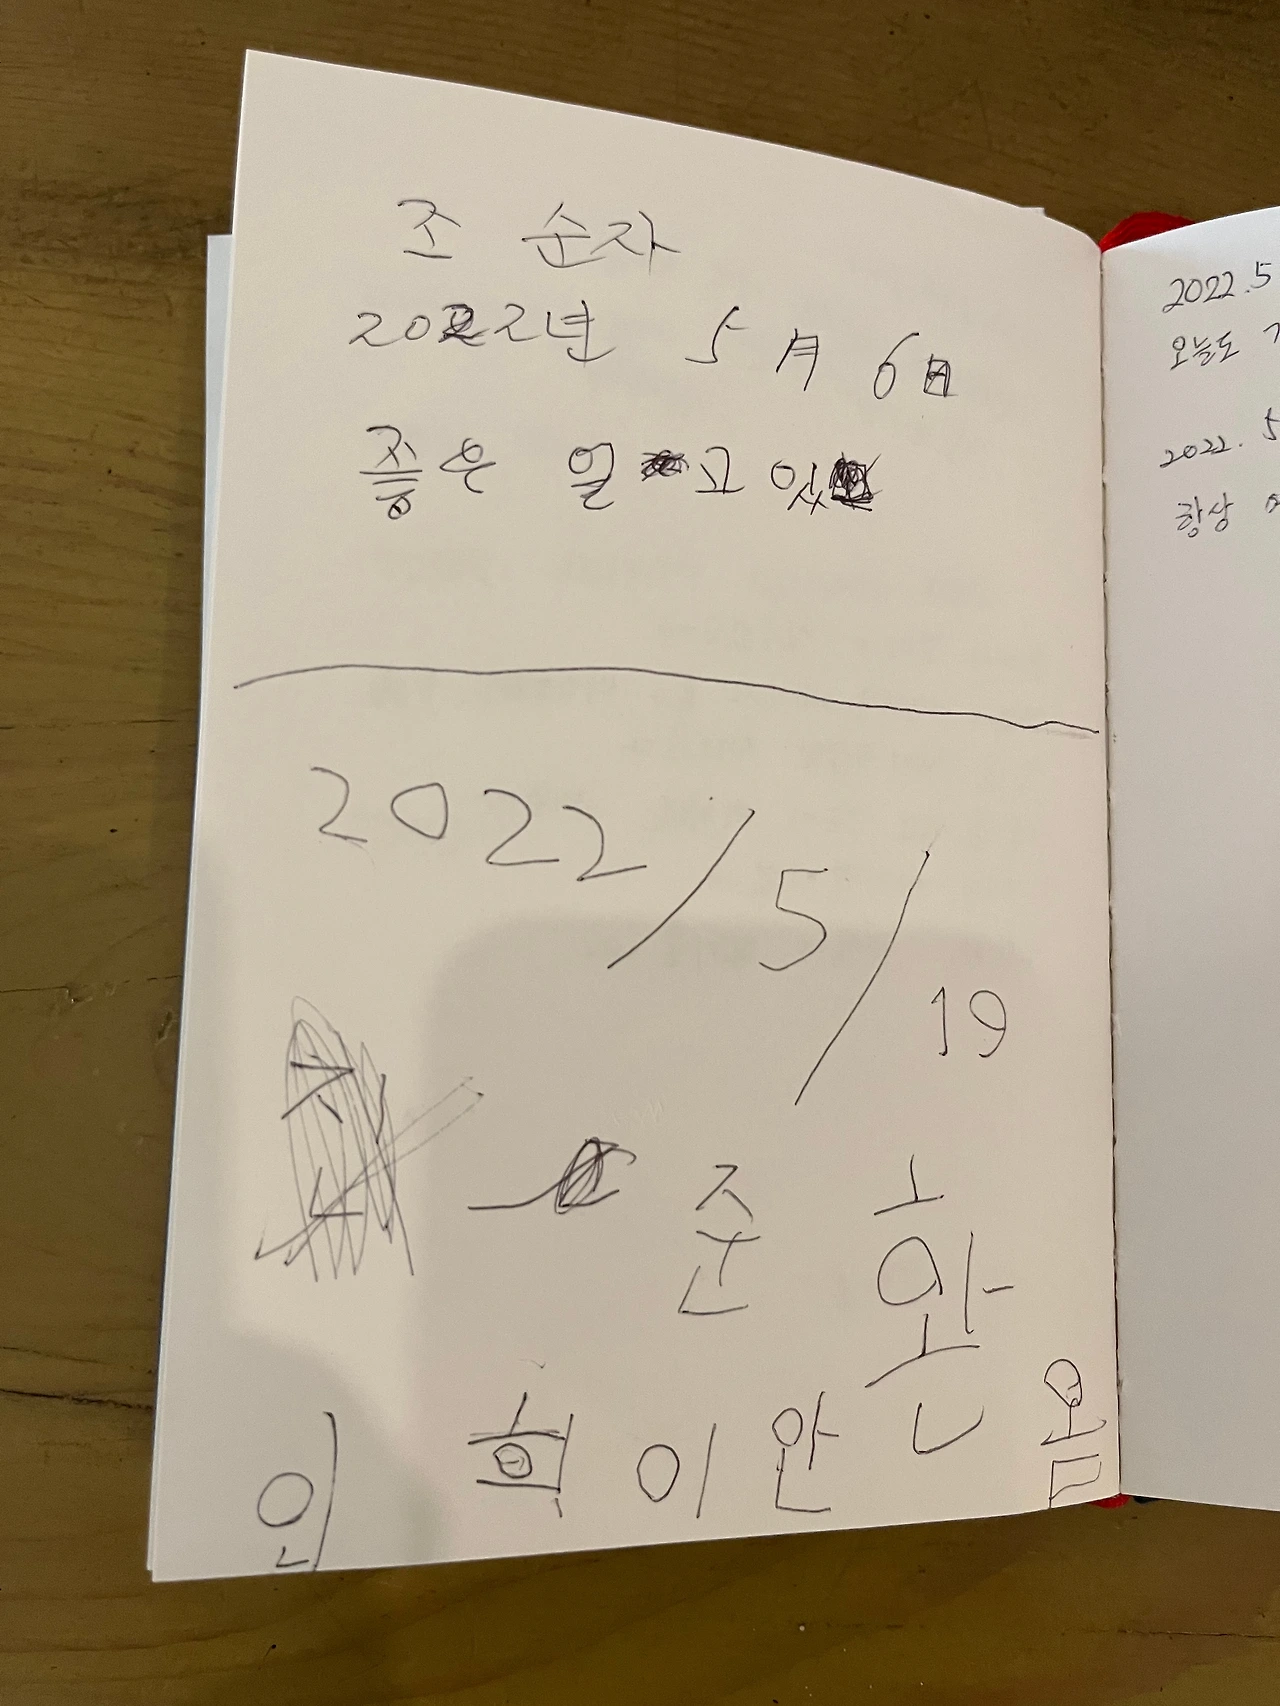 조 순자
2022년 5月 6日
좋은 일 고 있
2022/5/19
준 환
인 희 이 안 음
2022.5
오늘도
2022. 5
항상